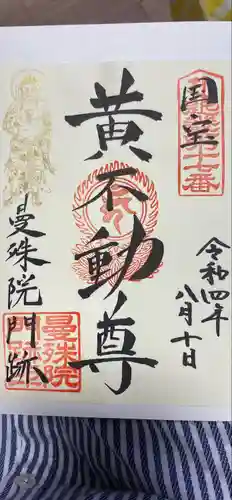 国宝
十七番
令和四年
八月十日
黄不動尊
曼殊院門跡
曼殊院